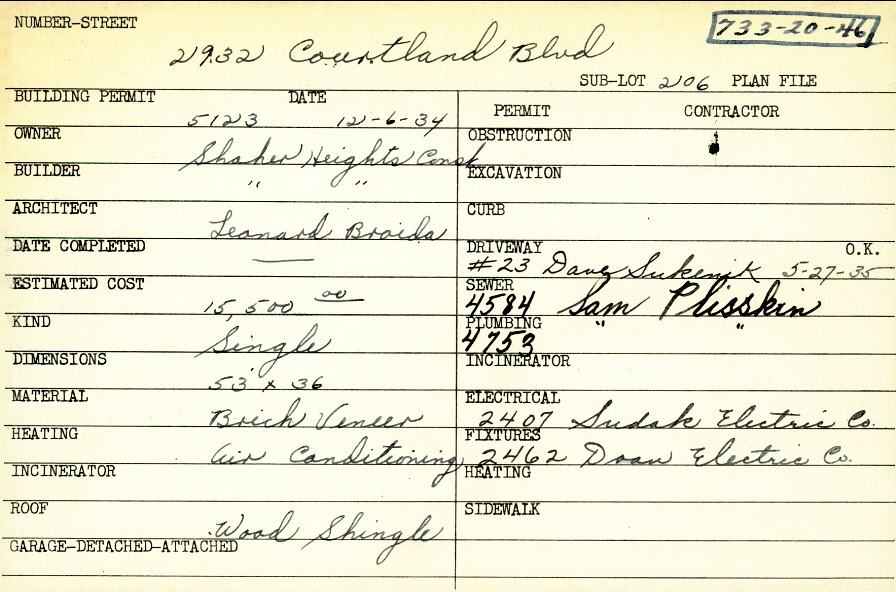 NUMBER-STREET
733-20-46
2932 Courtland Blvd
SUB-LOT 206 PLAN FILE
BUILDING PERMIT DATE
5123 12-6-34
PERMIT CONTRACTOR
OWNER
Shaker Heights Const
OBSTRUCTION
BUILDER
" "
EXCAVATION
ARCHITECT
Leonard Braida
CURB
DATE COMPLETED
—
DRIVEWAY O.K.
#23 Dave Sukenik 5-27-35
ESTIMATED COST
15,500 00
SEWER
4584 Sam Plisskin
KIND
Single
PLUMBING " "
4753
DIMENSIONS
53 x 36
INCINERATOR
MATERIAL
Brick Veneer
ELECTRICAL
2407 Sudak Electric Co.
HEATING
Air Conditioning
FIXTURES
2462 Doan Electric Co.
INCINERATOR
HEATING
ROOF
Wood Shingle
SIDEWALK
GARAGE-DETACHED-ATTACHED